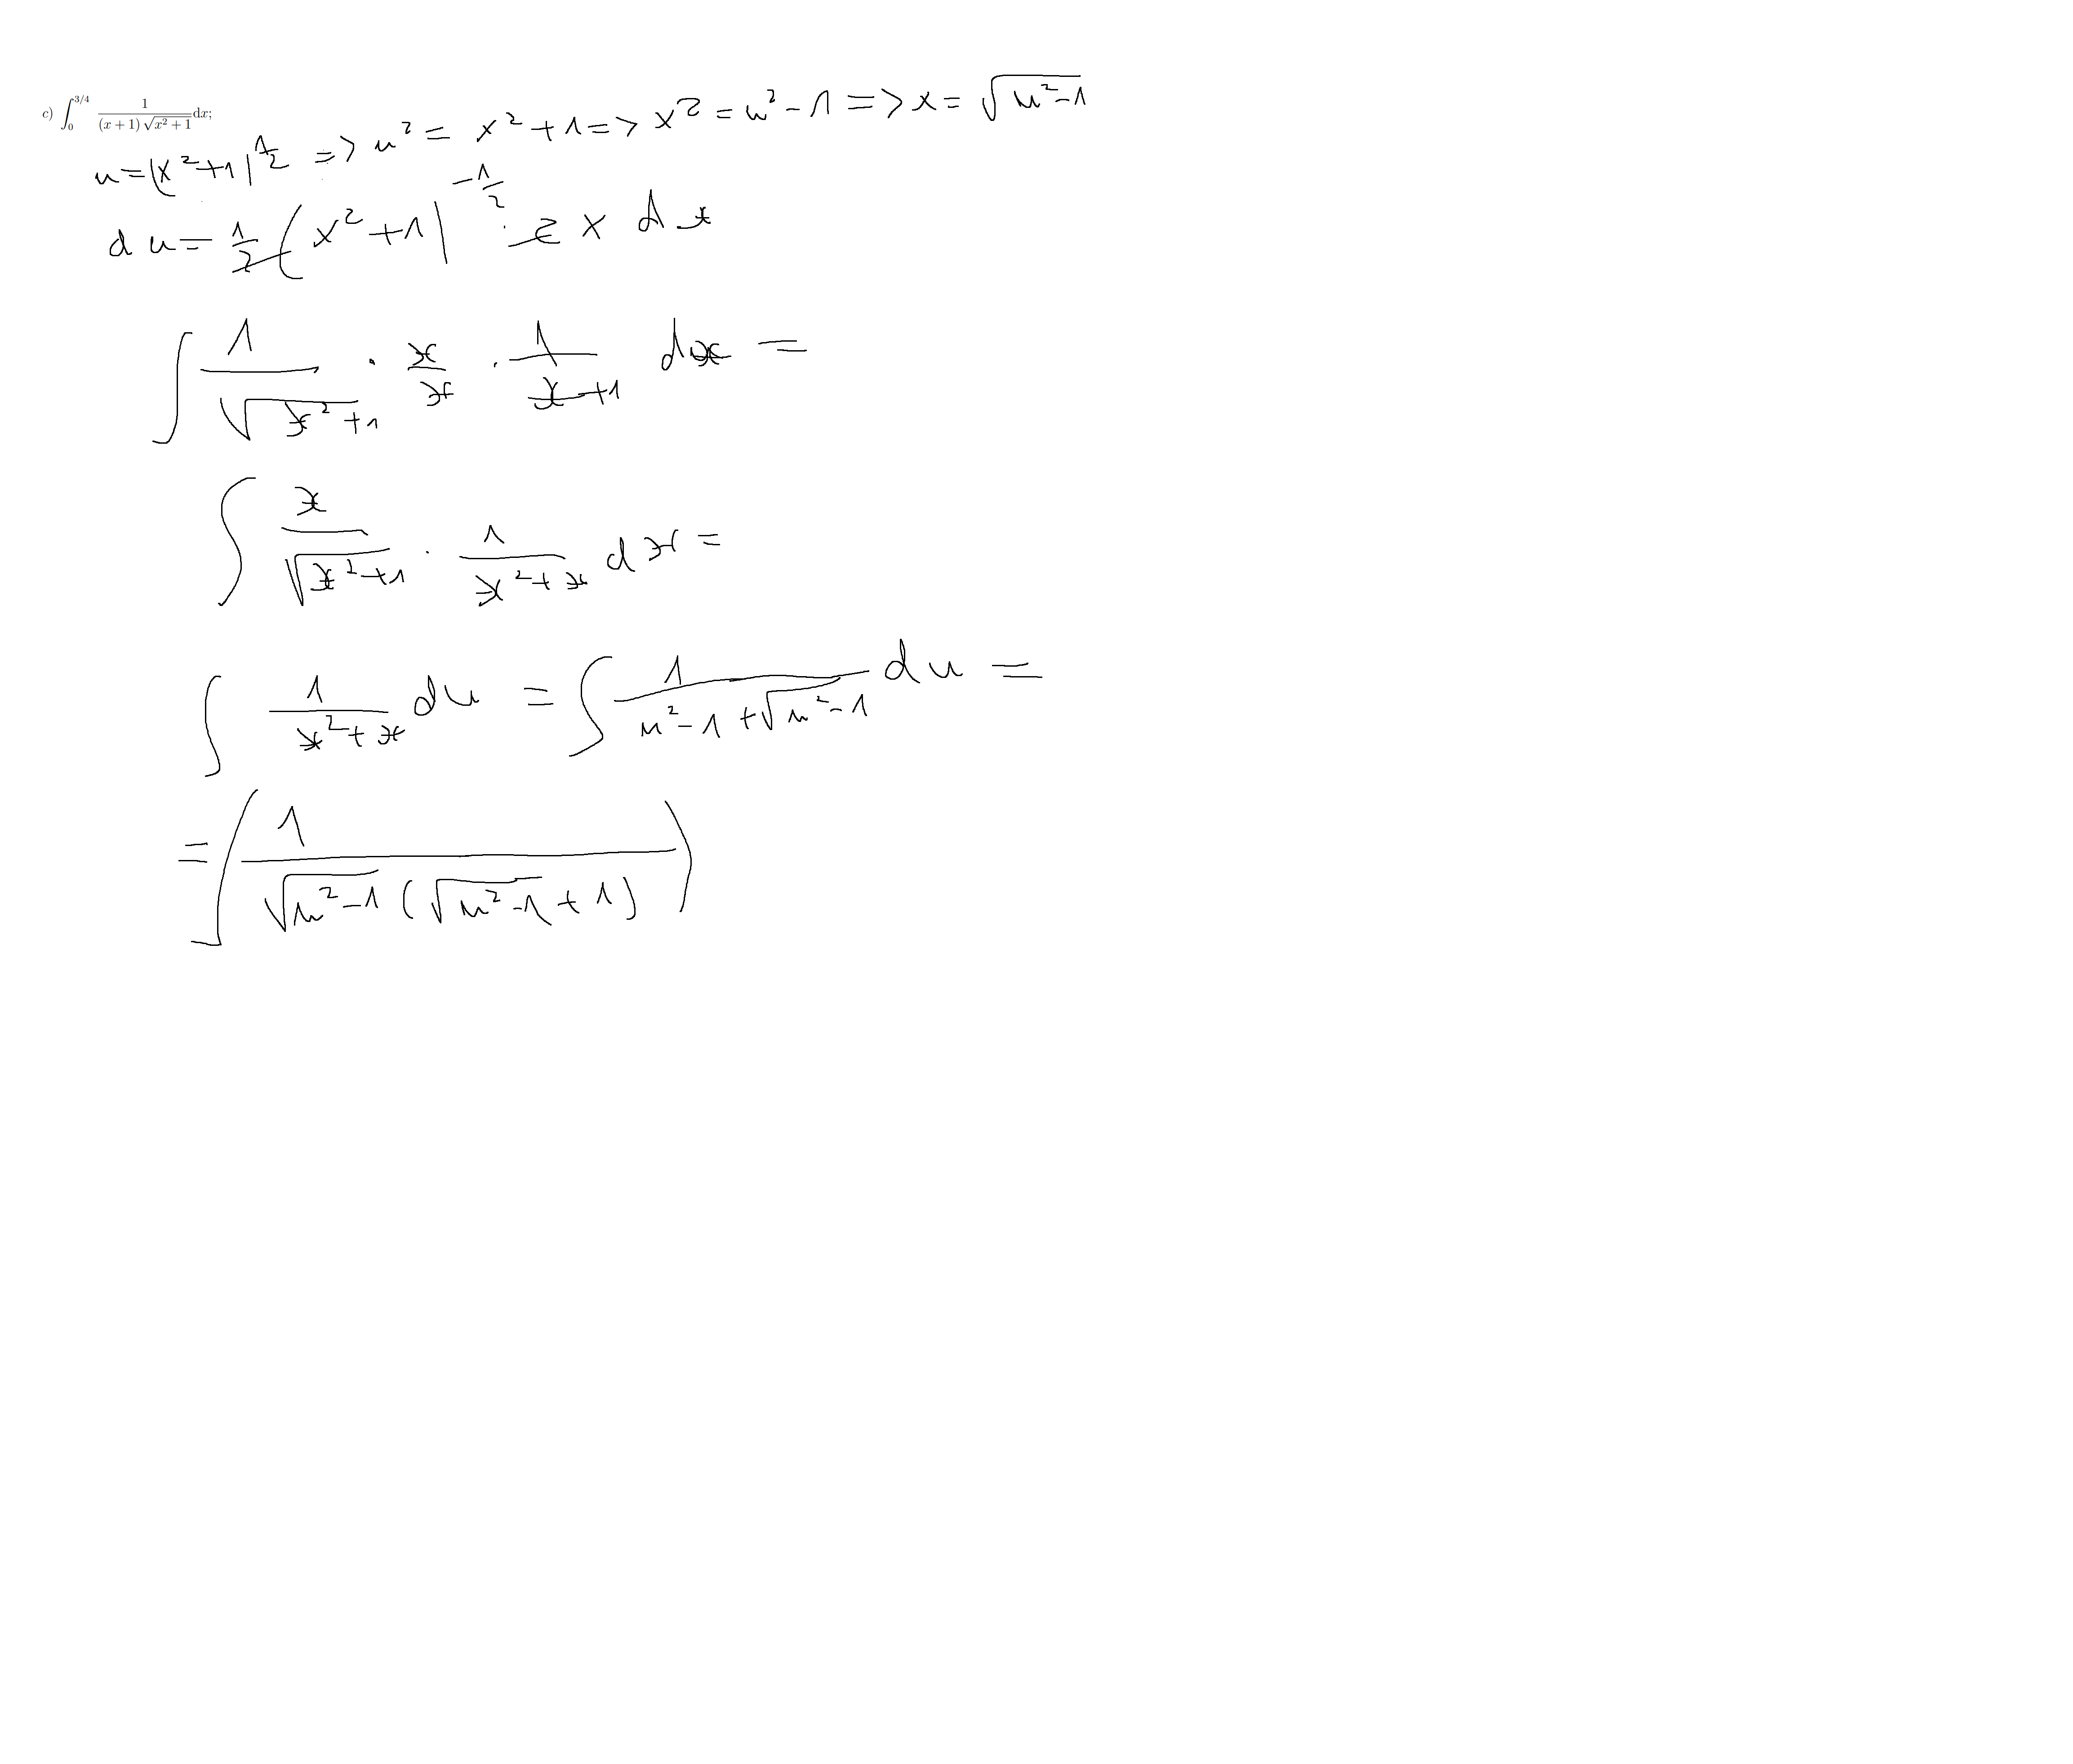 c) ∫_0^{3/4} 1/((x+1)√(x²+1)) dx;
u=(x²+1)^{1/2} => u² = x²+1 => x² = u²-1 => x = √(u²-1)
du = 1/2 (x²+1)^{-1/2} · 2 x dx
∫ 1/√(x²+1) · x/x · 1/(x+1) dx =
∫ x/√(x²+1) · 1/(x²+x) dx =
∫ 1/(x²+x) du = ∫ 1/(u²-1+√(u²-1)) du =
= ∫ (1/(√(u²-1) (√(u²-1)+1)))